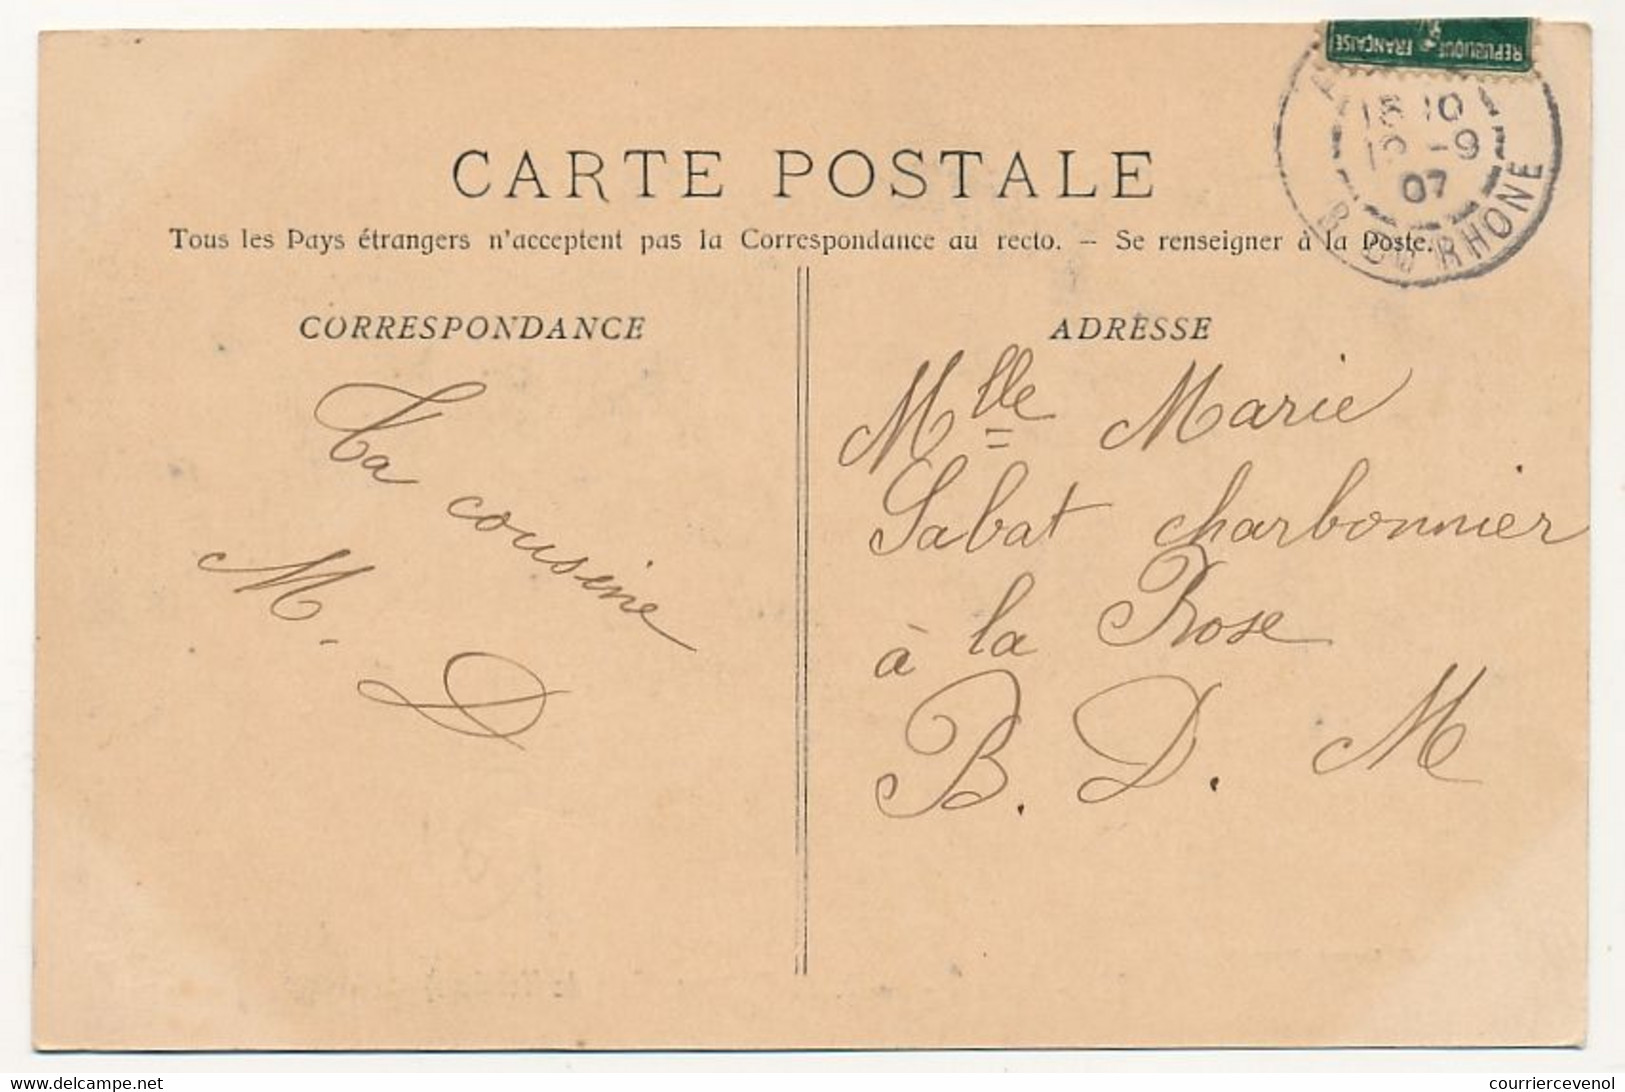 RÉPUBLIQUE FRANÇAISE
10
-9
07
B. DU RHONE
CARTE POSTALE
Tous les Pays étrangers n'acceptent pas la Correspondance au recto. – Se renseigner à la Poste.
CORRESPONDANCE
Ta cousine
M. D
ADRESSE
Mlle Marie
Sabat charbonnier
à la Rose
B. D. M
delcampe.net
courriercevenol